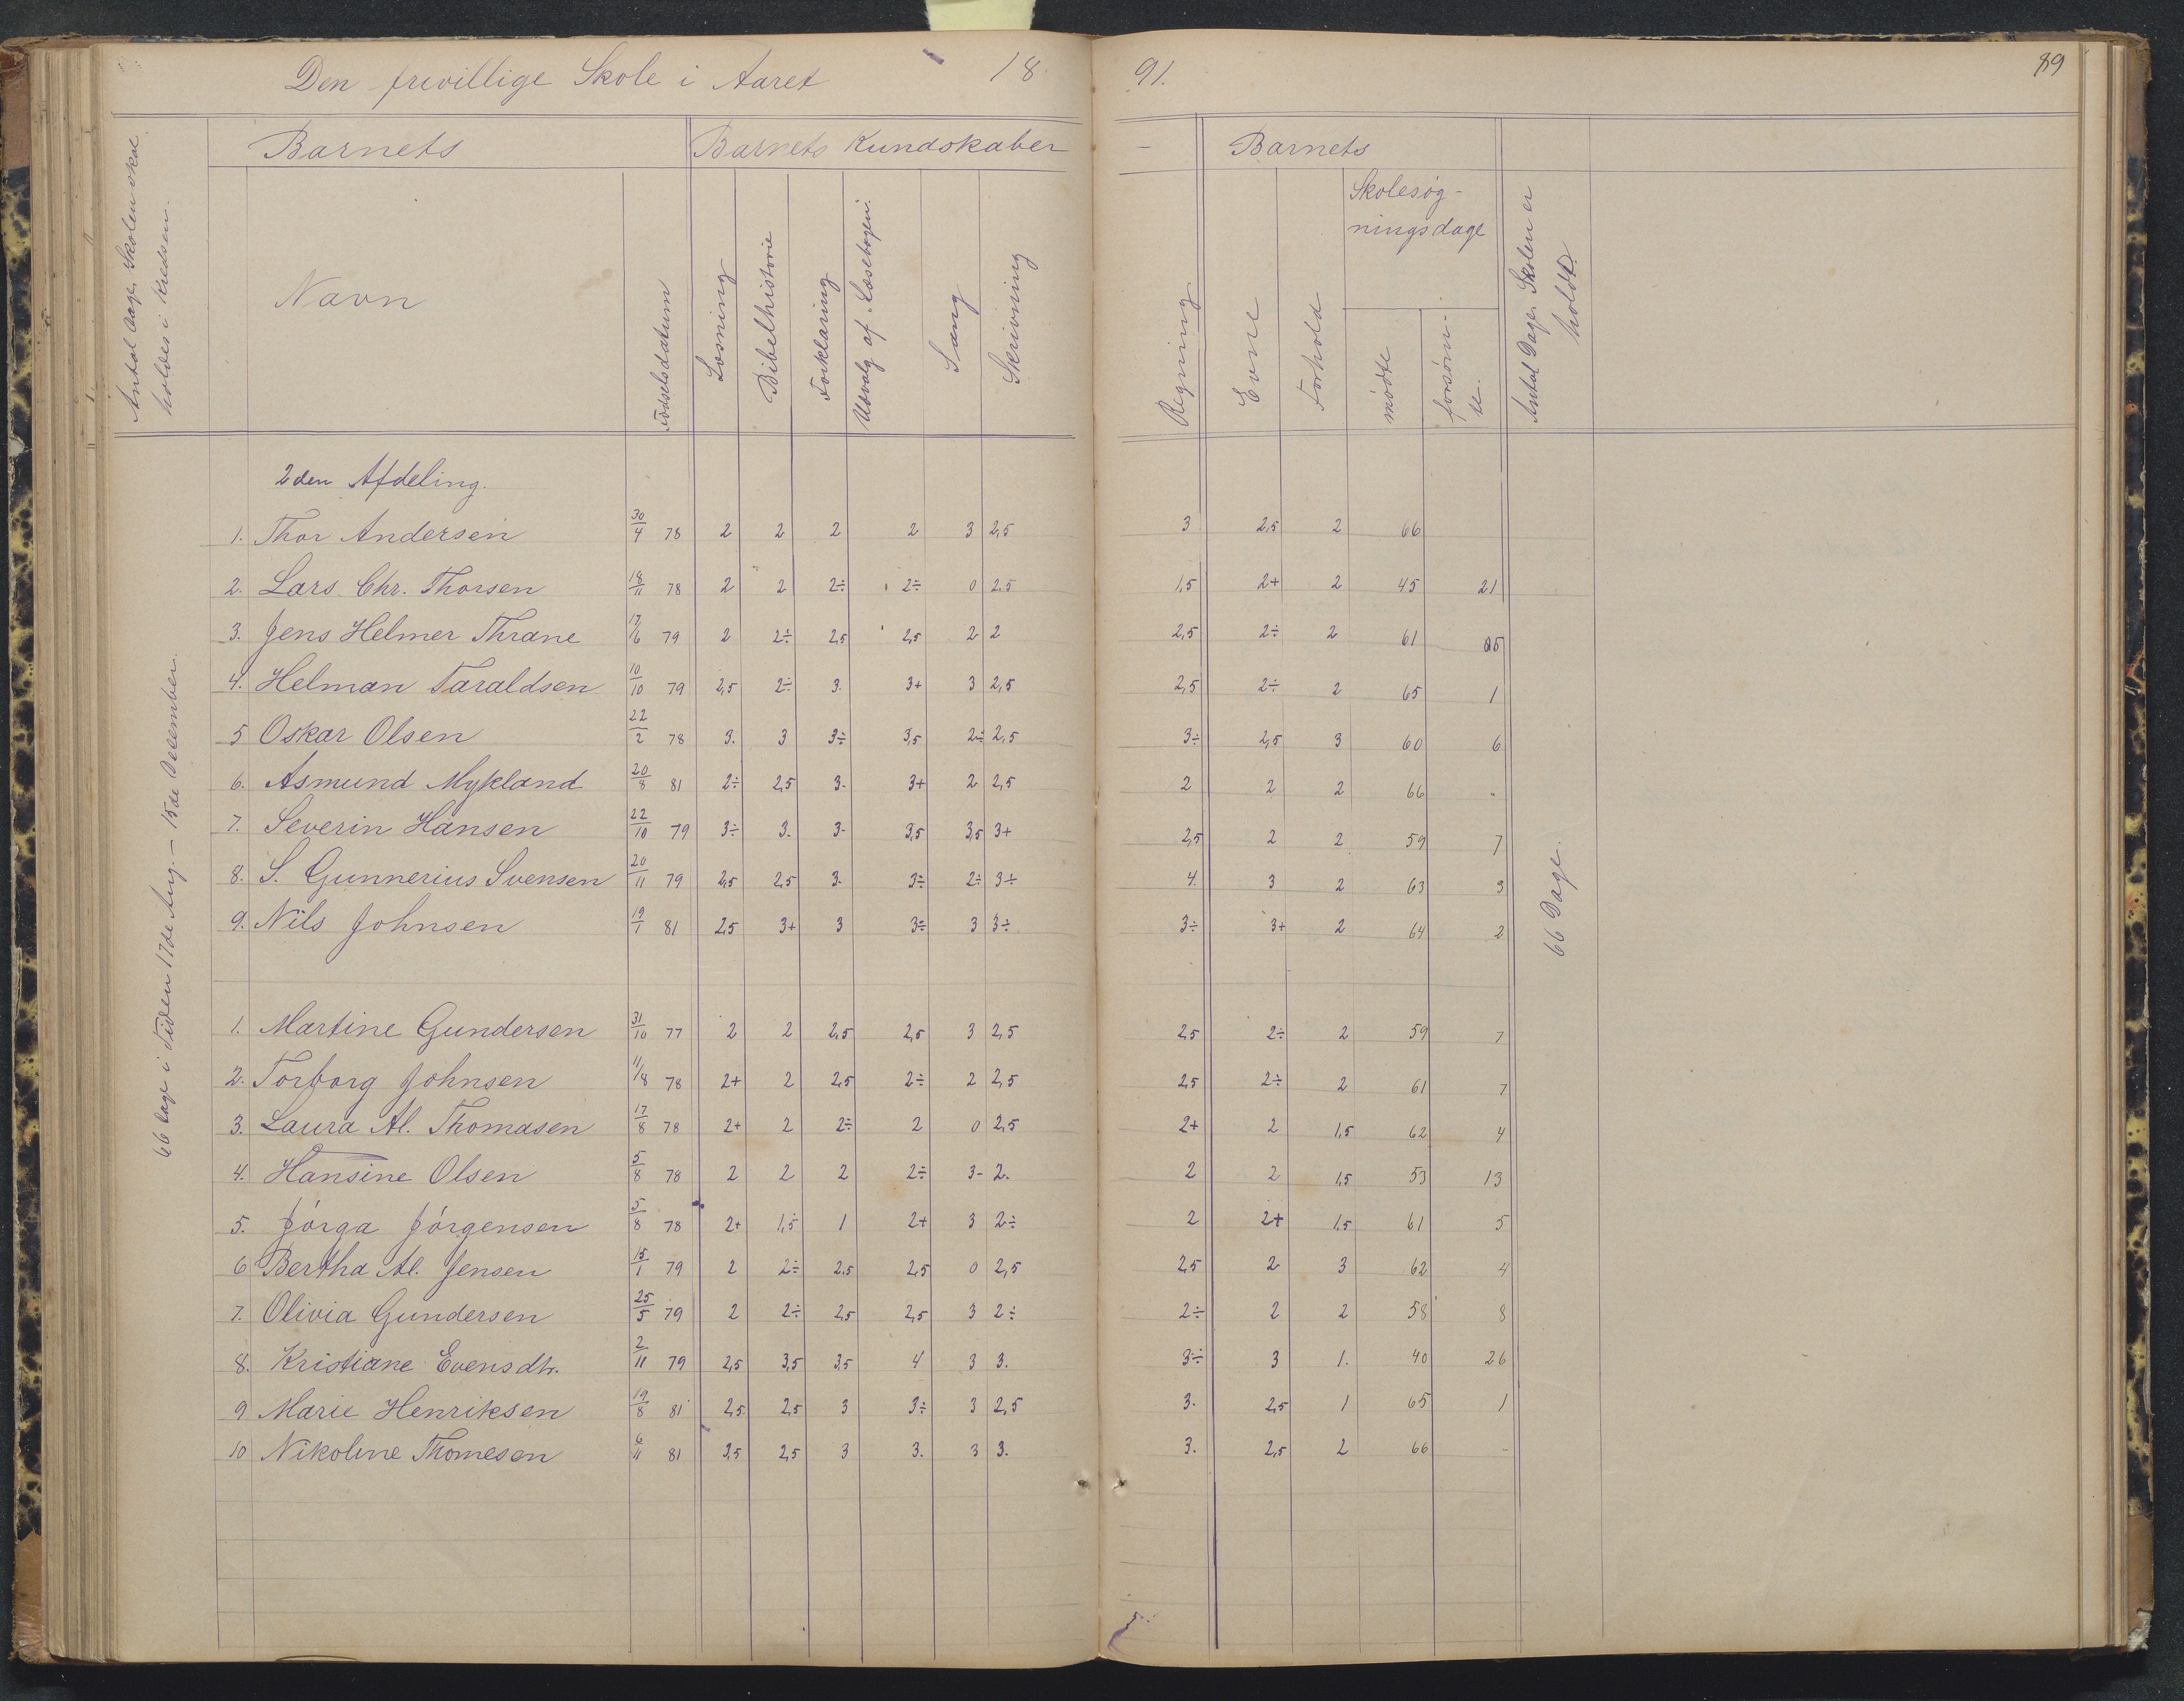 Den frivillige Skole i Aaret 18 91. 89
Antal Dage, Skolen skal holdes i Kredsen.
Barnets
Barnets Kundskaber -
Barnets
Navn
Fødselsdatum
Læsning
Bibelhistorie
Forklaring
Udvalg af Læsebogen.
Sang
Skrivning
Regning
Evne
Forhold
Skolesøg-
ningsdage
mødte
forsøm-
te.
Antal Dage, Skolen er
holdt.
66 Dage i Tiden 17de Aug. - 15de December.
66 Dage.
2den Afdeling.
1. Thor Andersen 30/4 78 2 2 2 2 3 2,5 3 2,5 2 66
2. Lars Chr. Thorsen 18/11 78 2 2 2÷ 2÷ 0 2,5 1,5 2+ 2 45 21
3. Jens Helmer Thrane 17/6 79 2 2÷ 2,5 2,5 2 2 2,5 2÷ 2 61 5
4. Helman Taraldsen 10/10 79 2,5 2÷ 3. 3+ 3 2,5 2,5 2÷ 2 65 1
5 Oskar Olsen 22/2 78 3. 3 3÷ 3,5 2÷ 2,5 3÷ 2,5 3 60 6
6. Asmund Mykland 20/8 81 2÷ 2,5 3- 3+ 2 2,5 2 2 2 66 "
7. Severin Hansen 22/10 79 3÷ 3. 3- 3,5 3,5 3+ 2,5 2 2 59 7
8. S. Gunnerius Svensen 20/11 79 2,5 2,5 3. 3÷ 2÷ 3÷ 4. 3 2 63 3
9. Nils Johnsen 19/1 81 2,5 3+ 3 3÷ 3 3÷ 3÷ 3+ 2 64 2
1. Martine Gundersen 31/10 77 2 2 2,5 2,5 3 2,5 2,5 2÷ 2 59 7
2. Torborg Johnsen 11/8 78 2+ 2 2,5 2÷ 2 2,5 2,5 2÷ 2 61 7
3. Laura Al. Thomasen 17/8 78 2+ 2 2÷ 2 0 2,5 2+ 2 1,5 62 4
4. Hansine Olsen 5/8 78 2 2 2 2÷ 3- 2. 2 2 1,5 53 13
5. Jórga Jórgensen 5/8 78 2+ 1,5 1 2+ 3 2÷ 2 2+ 1,5 61 5
6 Bertha Al. Jensen 15/1 79 2 2÷ 2,5 2,5 0 2,5 2,5 2 3 62 4
7. Olivia Gundersen 25/5 79 2 2÷ 2,5 2,5 3 2÷ 2÷ 2 2 58 8
8. Kristiane Evensdtr. 2/11 79 2,5 3,5 3,5 4 3 3. 3÷ 3 1. 40 26
9 Marie Henriksen 19/8 81 2,5 2,5 3 3÷ 3 2,5 3. 2,5 1 65 1
10 Nikoline Thomesen 6/11 81 3,5 2,5 3 3. 3 3. 3. 2,5 2 66 -